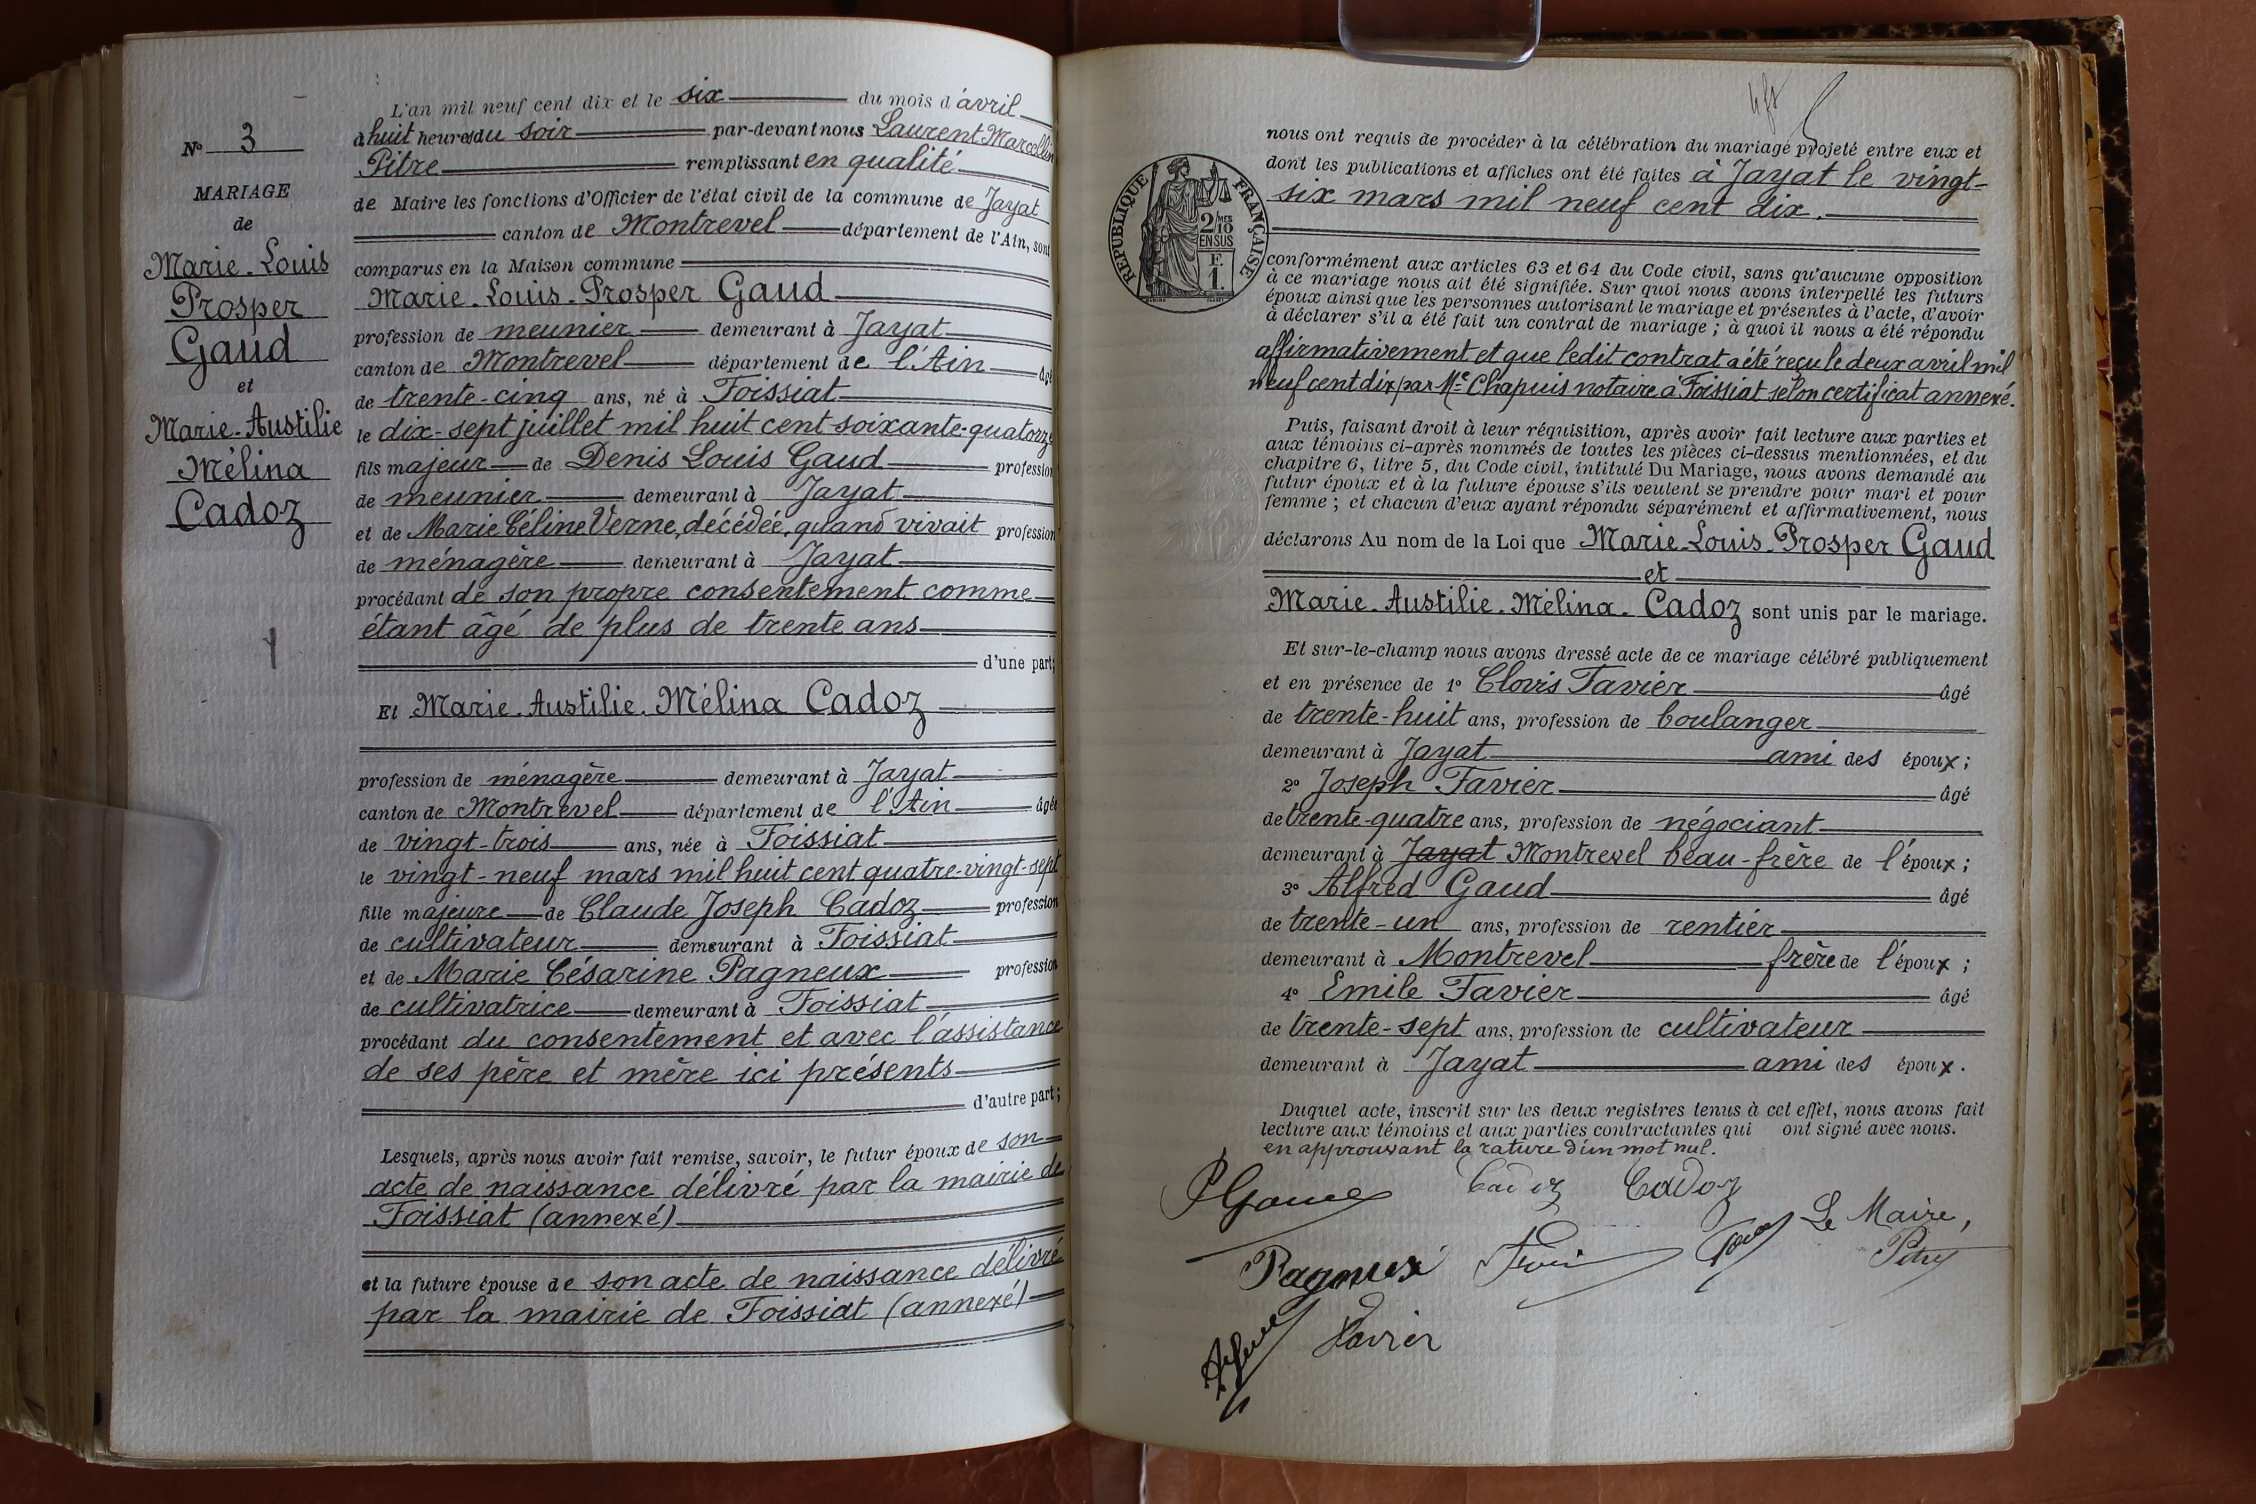 N° 3
MARIAGE
de
Marie-Louis
Prosper
Gaud
et
Marie-Austilie
Mélina
Cadoz
L'an mil neuf cent dix et le six du mois d'avril
à huit heures du soir par-devant nous Laurent Marcellin
Pitre remplissant en qualité
de Maire les fonctions d'Officier de l'état civil de la commune de Jayat
canton de Montrevel département de l'Ain, sont
comparus en la Maison commune
Marie-Louis-Prosper Gaud
profession de meunier demeurant à Jayat
canton de Montrevel département de l'Ain âgé
de trente-cinq ans, né à Foissiat
le dix-sept juillet mil huit cent soixante-quatorze
fils majeur de Denis Louis Gaud profession
de meunier demeurant à Jayat
et de Marie Céline Verne, décédée, quand vivait profession
de ménagère demeurant à Jayat
procédant de son propre consentement comme
étant âgé de plus de trente ans
d'une part;
Et Marie-Austilie-Mélina Cadoz
profession de ménagère demeurant à Jayat
canton de Montrevel département de l'Ain âgée
de vingt-trois ans, née à Foissiat
le vingt-neuf mars mil huit cent quatre-vingt-sept
fille majeure de Claude Joseph Cadoz profession
de cultivateur demeurant à Foissiat
et de Marie Césarine Pagneux profession
de cultivatrice demeurant à Foissiat
procédant du consentement et avec l'assistance
de ses père et mère ici présents
d'autre part;
Lesquels, après nous avoir fait remise, savoir, le futur époux de son
acte de naissance délivré par la mairie de
Foissiat (annexé)
et la future épouse de son acte de naissance délivré
par la mairie de Foissiat (annexé)
RÉPUBLIQUE FRANÇAISE
2/10
EN SUS
F.
1.
nous ont requis de procéder à la célébration du mariage projeté entre eux et
dont les publications et affiches ont été faites à Jayat le vingt-
six mars mil neuf cent dix.
conformément aux articles 63 et 64 du Code civil, sans qu'aucune opposition
à ce mariage nous ait été signifiée. Sur quoi nous avons interpellé les futurs
époux ainsi que les personnes autorisant le mariage et présentes à l'acte, d'avoir
à déclarer s'il a été fait un contrat de mariage ; à quoi il nous a été répondu
affirmativement et que ledit contrat a été reçu le deux avril mil
neuf cent dix par Me Chapuis notaire à Foissiat selon certificat annexé.
Puis, faisant droit à leur réquisition, après avoir fait lecture aux parties et
aux témoins ci-après nommés de toutes les pièces ci-dessus mentionnées, et du
chapitre 6, titre 5, du Code civil, intitulé Du Mariage, nous avons demandé au
futur époux et à la future épouse s'ils veulent se prendre pour mari et pour
femme ; et chacun d'eux ayant répondu séparément et affirmativement, nous
déclarons Au nom de la Loi que Marie-Louis-Prosper Gaud
et
Marie-Austilie-Mélina-Cadoz sont unis par le mariage.
Et sur-le-champ nous avons dressé acte de ce mariage célébré publiquement
et en présence de 1° Clovis Favier âgé
de trente-huit ans, profession de boulanger
demeurant à Jayat ami des époux ;
2° Joseph Favier âgé
de trente-quatre ans, profession de négociant
demeurant à Jayat Montrevel beau-frère de l'époux ;
3° Alfred Gaud âgé
de trente-un ans, profession de rentier
demeurant à Montrevel frère de l'époux ;
4° Emile Favier âgé
de trente-sept ans, profession de cultivateur
demeurant à Jayat ami des époux.
Duquel acte, inscrit sur les deux registres tenus à cet effet, nous avons fait
lecture aux témoins et aux parties contractantes qui ont signé avec nous.
en approuvant la rature d'un mot nul.
Cadoz Cadoz
Le Maire,
Pitre
Pagneux
Favier